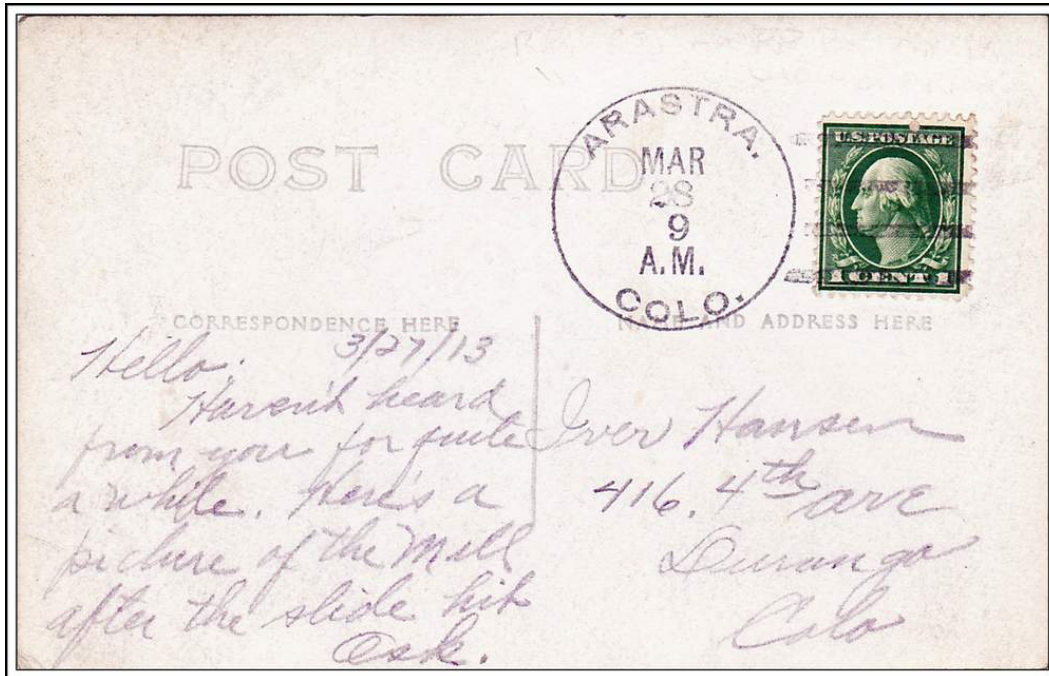 POST CARD
ARASTRA.
MAR
28
9
A.M.
COLO.
U.S. POSTAGE
1 CENT 1
CORRESPONDENCE HERE
NAME AND ADDRESS HERE
3/27/13
Hello:
Haven't heard
from you for quite
a while. Here's a
picture of the Mill
after the slide hit
Osk.
Iver Hansen
416. 4th ave
Durango
Colo